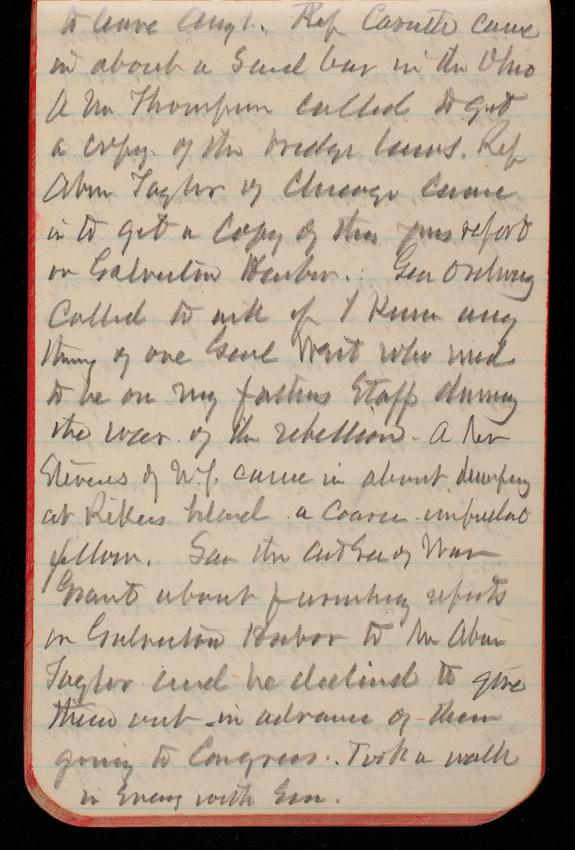 to leave Augt. Rep Caruth came
in about a Sand bar in the Ohio
A Mr Thompson called to get
a copy of the bridge laws. Rep
Abner Taylor of Chicago came
in to get a copy of the report
on Galveston Harbor. Gen Ordway
called to ask if I knew any
thing of one Genl West who used
to be on my fathers Staff during
the war of the rebellion. A Rev
Stevens of N.J. came in about dumping
at Rikers Island a coarse impudent
fellow. Saw the Act Sec of War
Grant about furnishing reports
on Galveston Harbor to Mr Abner
Taylor and he declined to give
them out in advance of them
going to Congress. Took a walk
in Eveng with Gen.